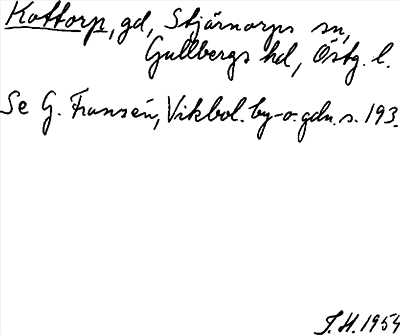 Kottorp, gd, Stjärnorps sn,
Gullbergs hd, Östg. l.
Se G. Fransén, Vikbol. by- o. gdn. s. 193.
J.H. 1954